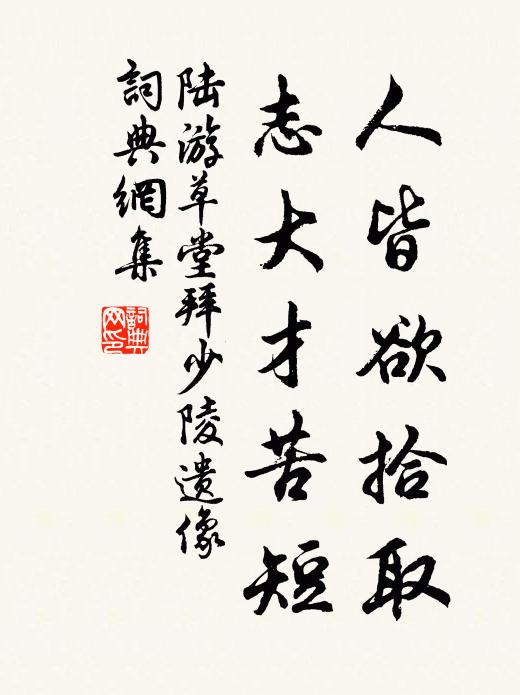 人皆欲拾取
志大才苦短
陆游草堂拜少陵遗像
詞典網集
詞典网印